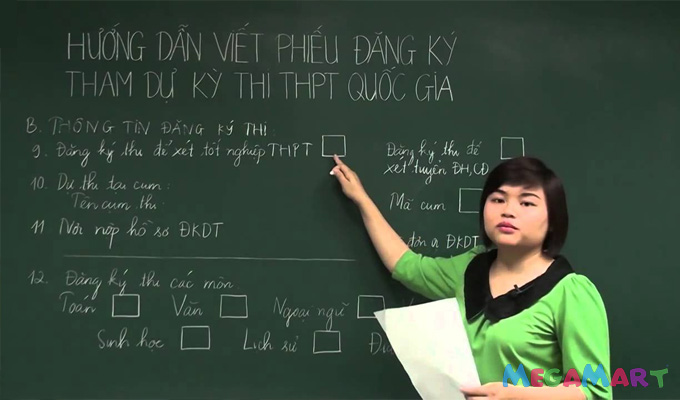 HƯỚNG DẪN VIẾT PHIẾU ĐĂNG KÝ
THAM DỰ KỲ THI THPT QUỐC GIA
B. THÔNG TIN ĐĂNG KÝ THI:
9. Đăng ký thi để xét tốt nghiệp THPT
Đăng ký thi để
xét tuyển ĐH, CĐ
10. Dự thi tại cụm:
Tên cụm thi:
Mã cụm
11. Nơi nộp hồ sơ ĐKDT
đơn vị ĐKDT
12. Đăng ký thi các môn
Toán Văn Ngoại ngữ
Sinh học Lịch sử
MEGAMART